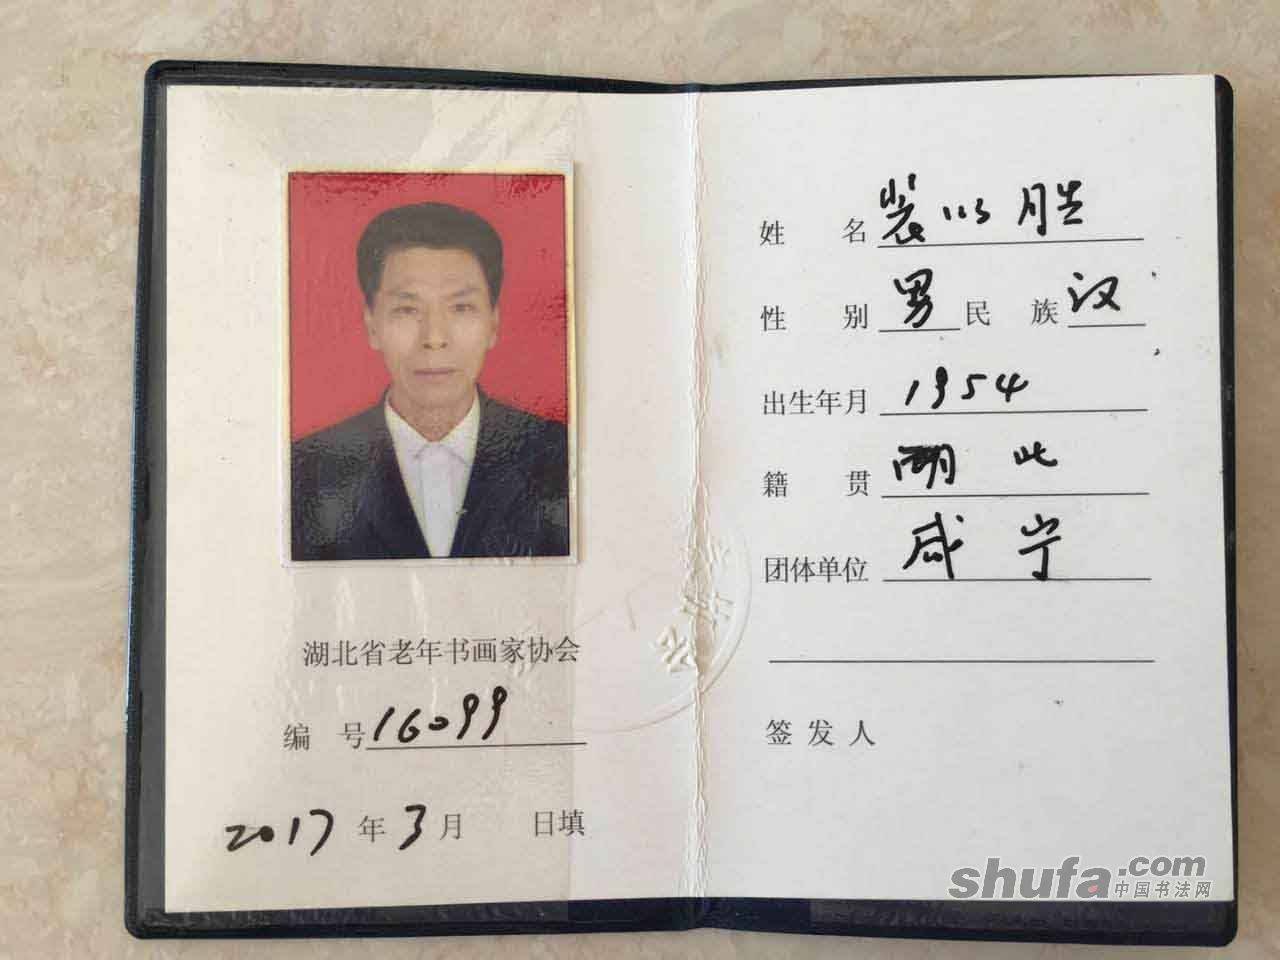 湖北省老年书画家协会
编 号 16099
2017 年 3 月 日填
姓 名 裴以胜
性 别 男 民 族 汉
出生年月 1954
籍 贯 湖北
团体单位 咸宁
签发人
shufa.com
中国书法网